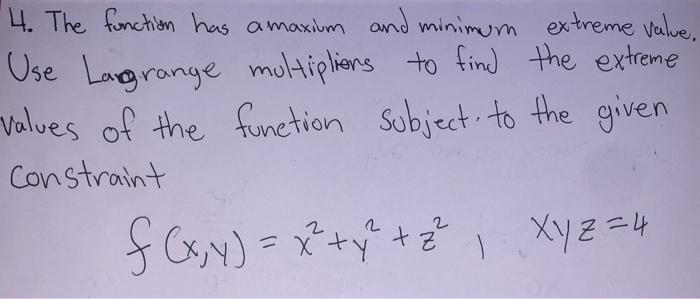 4. The function has a maxium and minimum extreme value.
Use Lagrange multipliers to find the extreme
values of the function subject to the given
constraint
f(x,y) = x²+y²+z² , xyz=4